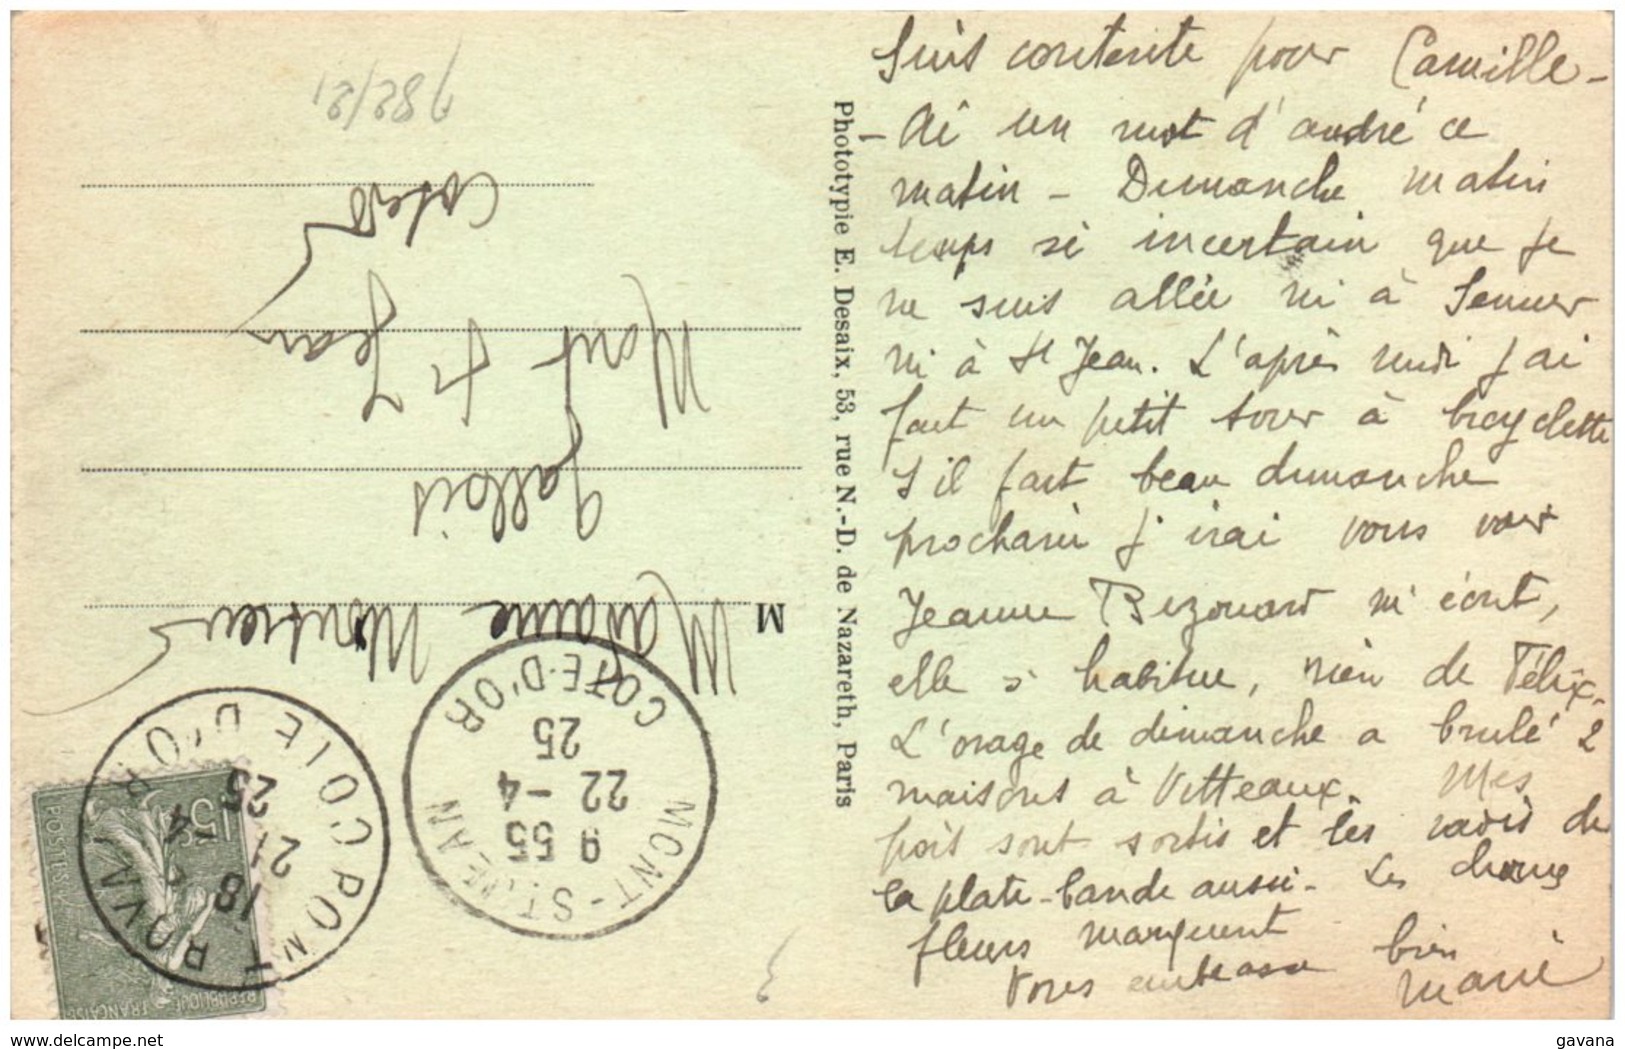 Suis contente pour Camille -
- Ai un mot d'André ce
matin - Dimanche matin
temps si incertain que je
ne suis allée ni à Semur
ni à St Jean. L'après midi j'ai
fait un petit tour à bicyclette
S'il fait beau dimanche
prochain j'irai vous voir
Jeanne Bizouard m'écrit,
elle s'habitue, rien de Félix.
L'orage de dimanche a brulé 2
maisons à Vitteaux. Mes
pois sont sortis et les radis de
la plate-bande aussi. Les
fleurs manquent bien
Vous embrasse
Marie
Phototypie E. Desaix, 53, rue N.-D. de Nazareth, Paris
M Madame
Gallois
Mont St Jean
Côte d'Or
982/21
MONT-ST-JEAN
9 55
22 - 4
25
COTE-D'OR
PONT ROYAL
18
21 - 4
25
CÔTE D'OR
15c
POSTES
RÉPUBLIQUE FRANÇAISE
delcampe.net
gavana